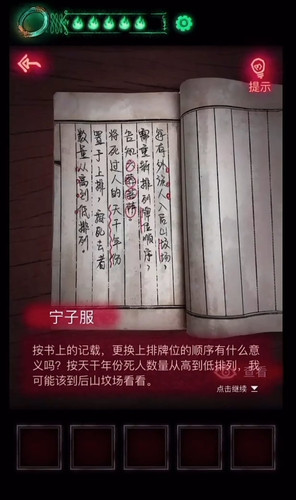 提示
有外族人入后山坟场，
需重新排列牌位顺序，
告知
将死过人的天干年份
置于上排，按死去者
数量从高到低排列。
宁子服
按书上的记载，更换上排牌位的顺序有什么意
义吗？按天干年份死人数量从高到低排列，我
可能该到后山坟场看看。
查看
点击继续